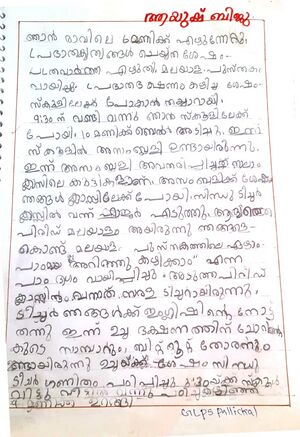 ആയുഷ് ബിജു
ഞാൻ രാവിലെ 6 മണിക്ക് എഴുന്നേറ്റു.
പ്രഭാതകൃത്യങ്ങൾ ചെയ്ത ശേഷം
പത്രവാർത്ത എഴുതി. മലയാള പുസ്തകം
വായിച്ചു. പ്രഭാതഭക്ഷണം കഴിച്ച ശേഷം
സ്കൂളിലേക്ക് പോകാൻ തയ്യാറായി.
9:30ന് വണ്ടി വന്നു ഞാൻ സ്കൂളിലേക്ക്
പോയി. 10 മണിക്ക് ബെൽ അടിച്ചു. ഇന്ന്
സ്കൂളിൽ അസംബ്ലി ഉണ്ടായിരുന്നു.
ഇന്ന് അസംബ്ലി അവതരിപ്പിച്ചത് നാലാം
ക്ലാസിലെ കുട്ടികളാണ്. അസംബ്ലിക്ക് ശേഷം
ഞങ്ങൾ ക്ലാസ്സിലേക്ക് പോയി. സിന്ധു ടീച്ചർ
ക്ലാസ്സിൽ വന്ന് ഹാജർ എടുത്തു. ആദ്യത്തെ
പിരീഡ് മലയാളം ആയിരുന്നു ഞങ്ങളെ
കൊണ്ടു മലയാള പുസ്തകത്തിലെ ഏഴാം
പാഠമായ "അറിഞ്ഞു കഴിക്കാം" എന്ന
പാഠഭാഗം വായിപ്പിച്ചു. അടുത്ത പിരീഡ്
ക്ലാസ്സിൽ വന്നത് സരള ടീച്ചറായിരുന്നു.
ടീച്ചർ ഞങ്ങൾക്ക് ഇംഗ്ലീഷിന്റെ നോട്ട്
തന്നു ഇന്ന് ഉച്ച ഭക്ഷണത്തിന് ചോറി
കൂടെ സാമ്പാറും, ബീറ്റ്റൂട്ട് തോരനും
ണ്ടായിരുന്നു ഉച്ചയ്ക്ക് ശേഷം സിന്ധു
ടീച്ചർ ഗണിതം പഠിപ്പിച്ചു 3:30യ്ക്ക് സ്കൂൾ
വിട്ടു
മണിക്ക് ഉറങ്ങി
GLPS Pallickal